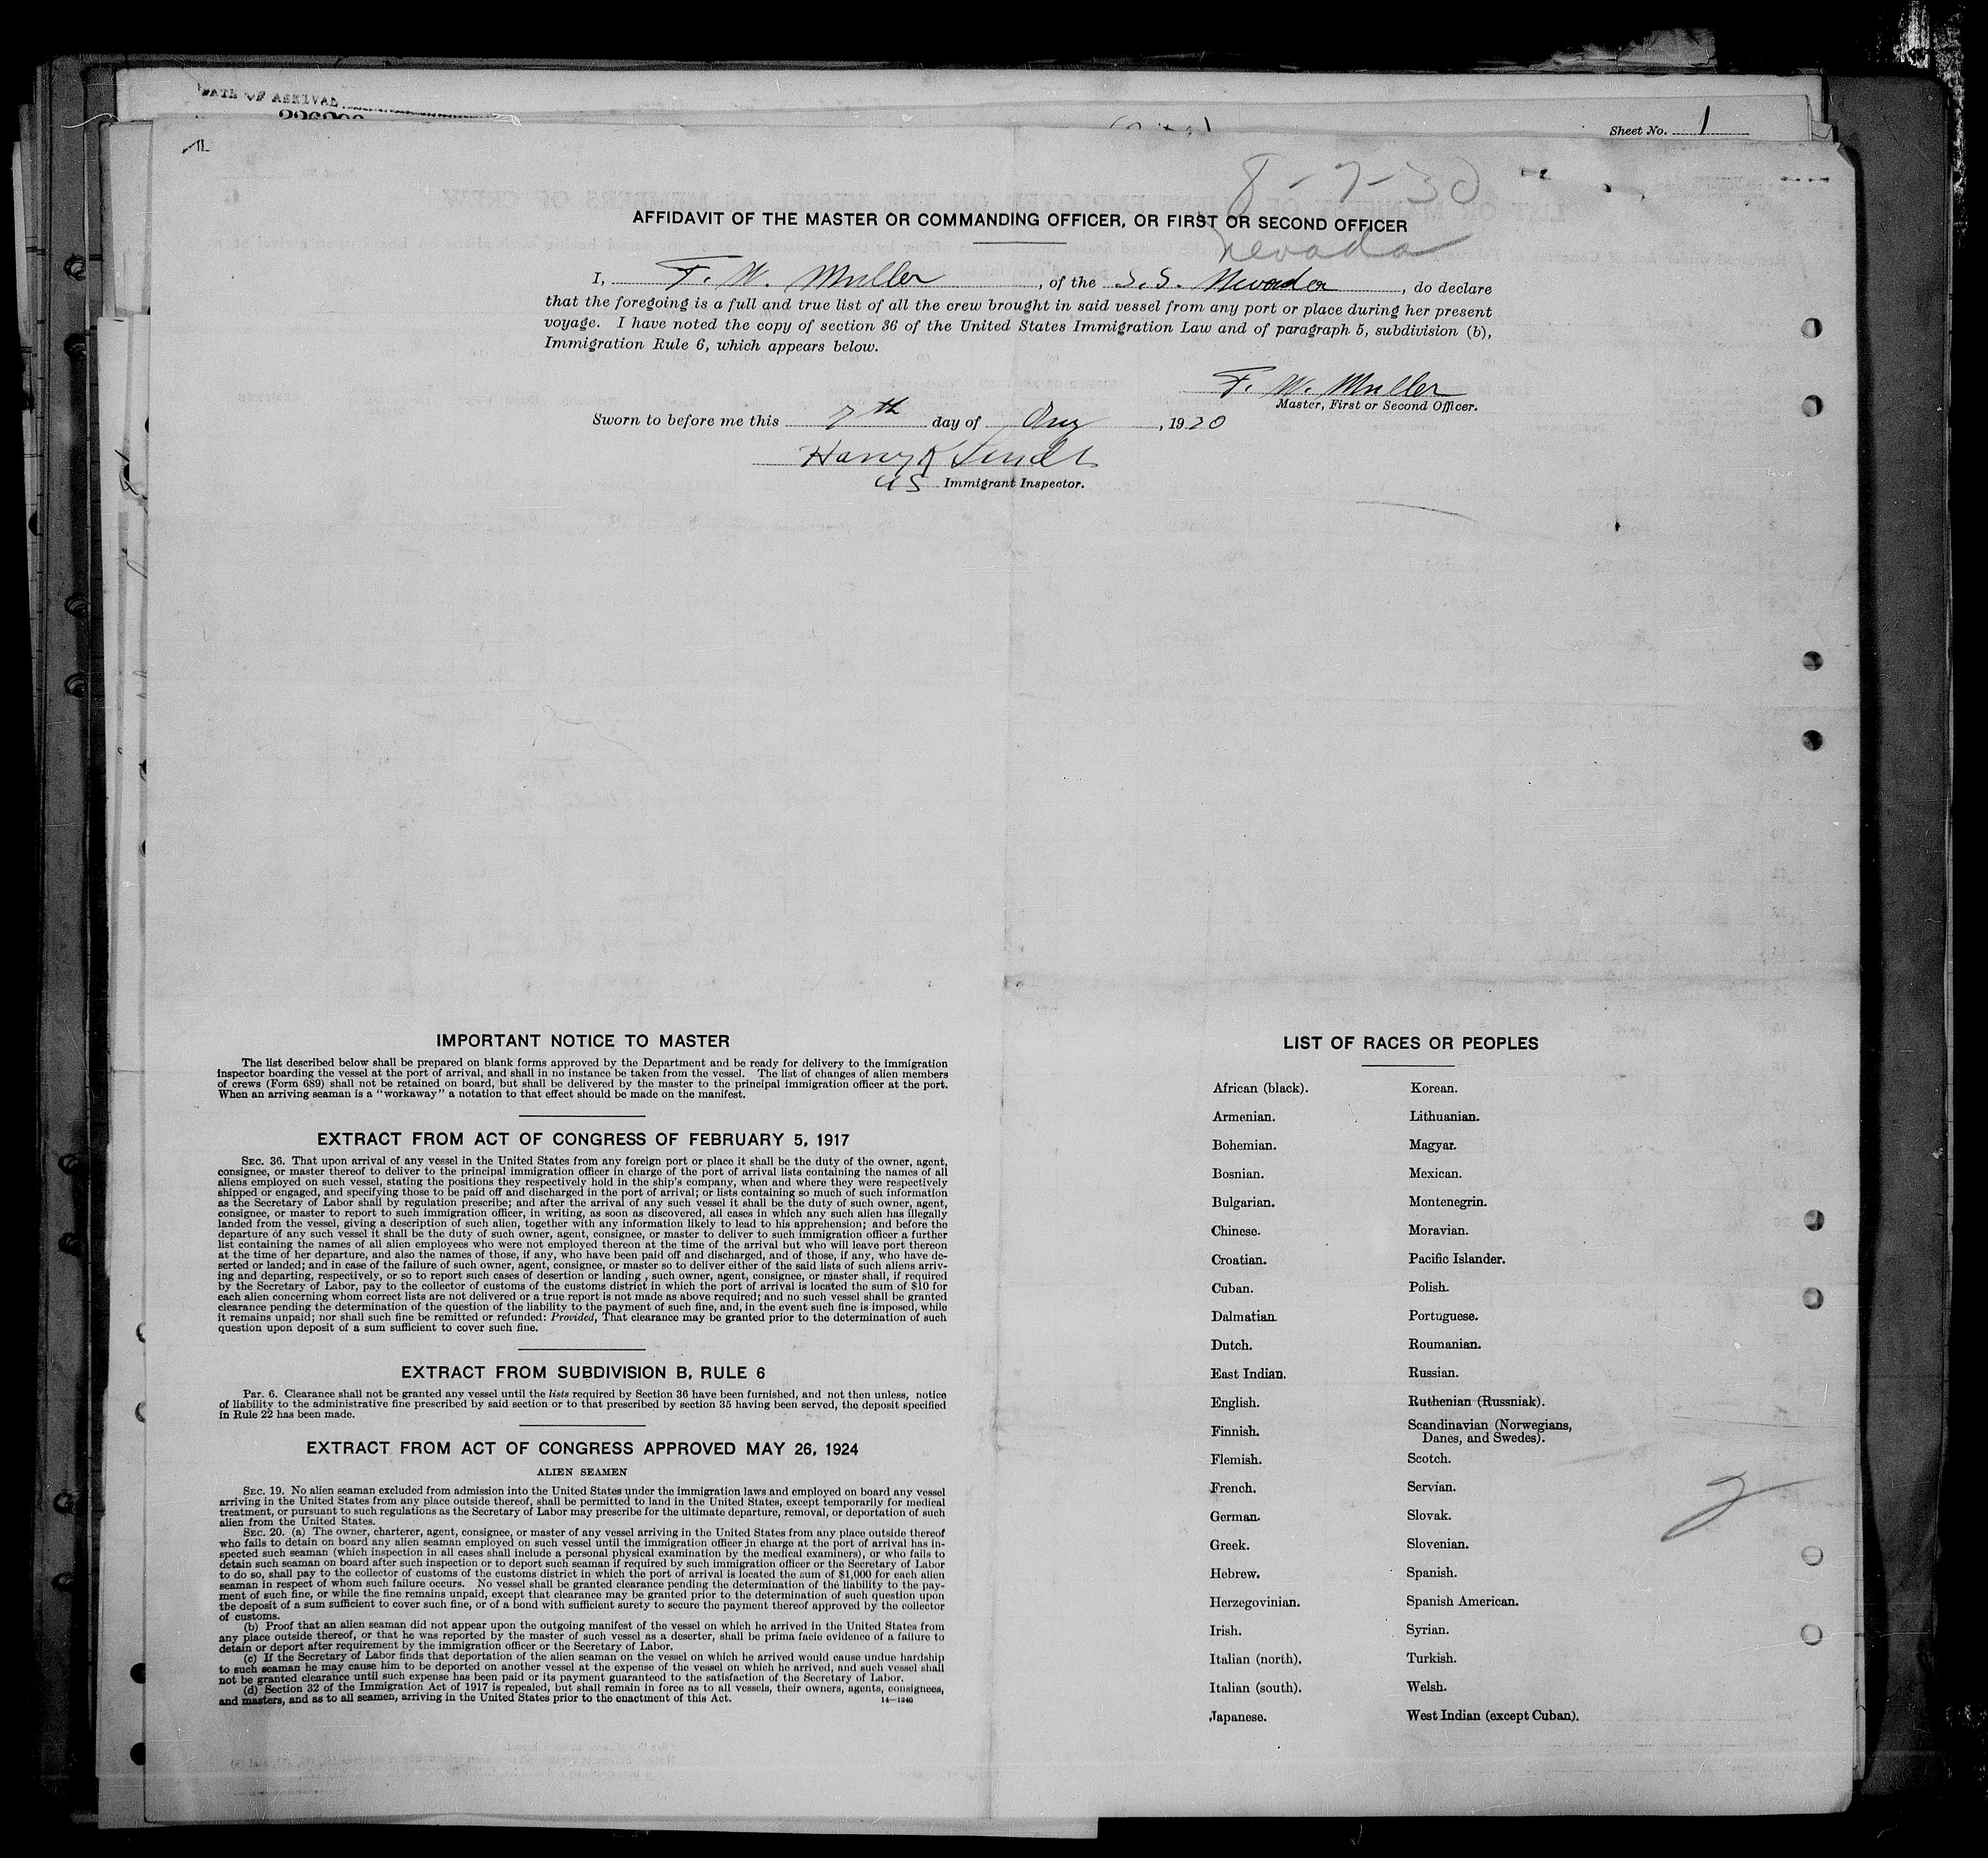 DATE OF ARRIVAL
Sheet No. 1
8-7-30
Nevada
AFFIDAVIT OF THE MASTER OR COMMANDING OFFICER, OR FIRST OR SECOND OFFICER
I, F. W. Muller, of the S.S. Nevada, do declare
that the foregoing is a full and true list of all the crew brought in said vessel from any port or place during her present
voyage. I have noted the copy of section 36 of the United States Immigration Law and of paragraph 5, subdivision (b),
Immigration Rule 6, which appears below.
F. W. Muller
Master, First or Second Officer.
Sworn to before me this 7th day of Aug, 1930
Harry K
US Immigrant Inspector.
IMPORTANT NOTICE TO MASTER
The list described below shall be prepared on blank forms approved by the Department and be ready for delivery to the immigration
inspector boarding the vessel at the port of arrival, and shall in no instance be taken from the vessel. The list of changes of alien members
of crews (Form 689) shall not be retained on board, but shall be delivered by the master to the principal immigration officer at the port.
When an arriving seaman is a "workaway" a notation to that effect should be made on the manifest.
EXTRACT FROM ACT OF CONGRESS OF FEBRUARY 5, 1917
SEC. 36. That upon arrival of any vessel in the United States from any foreign port or place it shall be the duty of the owner, agent,
consignee, or master thereof to deliver to the principal immigration officer in charge of the port of arrival lists containing the names of all
aliens employed on such vessel, stating the positions they respectively hold in the ship's company, when and where they were respectively
shipped or engaged, and specifying those to be paid off and discharged in the port of arrival; or lists containing so much of such information
as the Secretary of Labor shall by regulation prescribe; and after the arrival of any such vessel it shall be the duty of such owner, agent,
consignee, or master to report to such immigration officer, in writing, as soon as discovered, all cases in which any such alien has illegally
landed from the vessel, giving a description of such alien, together with any information likely to lead to his apprehension; and before the
departure of any such vessel it shall be the duty of such owner, agent, consignee, or master to deliver to such immigration officer a further
list containing the names of all alien employees who were not employed thereon at the time of the arrival but who will leave port thereon
at the time of her departure, and also the names of those, if any, who have been paid off and discharged, and of those, if any, who have de-
serted or landed; and in case of the failure of such owner, agent, consignee, or master so to deliver either of the said lists of such aliens arriv-
ing and departing, respectively, or so to report such cases of desertion or landing , such owner, agent, consignee, or master shall, if required
by the Secretary of Labor, pay to the collector of customs of the customs district in which the port of arrival is located the sum of $10 for
each alien concerning whom correct lists are not delivered or a true report is not made as above required; and no such vessel shall be granted
clearance pending the determination of the question of the liability to the payment of such fine, and, in the event such fine is imposed, while
it remains unpaid; nor shall such fine be remitted or refunded: Provided, That clearance may be granted prior to the determination of such
question upon deposit of a sum sufficient to cover such fine.
EXTRACT FROM SUBDIVISION B, RULE 6
Par. 6. Clearance shall not be granted any vessel until the lists required by Section 36 have been furnished, and not then unless, notice
of liability to the administrative fine prescribed by said section or to that prescribed by section 35 having been served, the deposit specified
in Rule 22 has been made.
EXTRACT FROM ACT OF CONGRESS APPROVED MAY 26, 1924
ALIEN SEAMEN
SEC. 19. No alien seaman excluded from admission into the United States under the immigration laws and employed on board any vessel
arriving in the United States from any place outside thereof, shall be permitted to land in the United States, except temporarily for medical
treatment, or pursuant to such regulations as the Secretary of Labor may prescribe for the ultimate departure, removal, or deportation of such
alien from the United States.
SEC. 20. (a) The owner, charterer, agent, consignee, or master of any vessel arriving in the United States from any place outside thereof
who fails to detain on board any alien seaman employed on such vessel until the immigration officer in charge at the port of arrival has in-
spected such seaman (which inspection in all cases shall include a personal physical examination by the medical examiners), or who fails to
detain such seaman on board after such inspection or to deport such seaman if required by such immigration officer or the Secretary of Labor
to do so, shall pay to the collector of customs of the customs district in which the port of arrival is located the sum of $1,000 for each alien
seaman in respect of whom such failure occurs. No vessel shall be granted clearance pending the determination of the liability to the pay-
ment of such fine, or while the fine remains unpaid, except that clearance may be granted prior to the determination of such question upon
the deposit of a sum sufficient to cover such fine, or of a bond with sufficient surety to secure the payment thereof approved by the collector
of customs.
(b) Proof that an alien seaman did not appear upon the outgoing manifest of the vessel on which he arrived in the United States from
any place outside thereof, or that he was reported by the master of such vessel as a deserter, shall be prima facie evidence of a failure to
detain or deport after requirement by the immigration officer or the Secretary of Labor.
(c) If the Secretary of Labor finds that deportation of the alien seaman on the vessel on which he arrived would cause undue hardship
to such seaman he may cause him to be deported on another vessel at the expense of the vessel on which he arrived, and such vessel shall
not be granted clearance until such expense has been paid or its payment guaranteed to the satisfaction of the Secretary of Labor.
(d) Section 32 of the Immigration Act of 1917 is repealed, but shall remain in force as to all vessels, their owners, agents, consignees,
and masters, and as to all seamen, arriving in the United States prior to the enactment of this Act.
14—1240
LIST OF RACES OR PEOPLES
African (black).
Armenian.
Bohemian.
Bosnian.
Bulgarian.
Chinese.
Croatian.
Cuban.
Dalmatian.
Dutch.
East Indian.
English.
Finnish.
Flemish.
French.
German.
Greek.
Hebrew.
Herzegovinian.
Irish.
Italian (north).
Italian (south).
Japanese.
Korean.
Lithuanian.
Magyar.
Mexican.
Montenegrin.
Moravian.
Pacific Islander.
Polish.
Portuguese.
Roumanian.
Russian.
Ruthenian (Russniak).
Scandinavian (Norwegians,
Danes, and Swedes).
Scotch.
Servian.
Slovak.
Slovenian.
Spanish.
Spanish American.
Syrian.
Turkish.
Welsh.
West Indian (except Cuban).